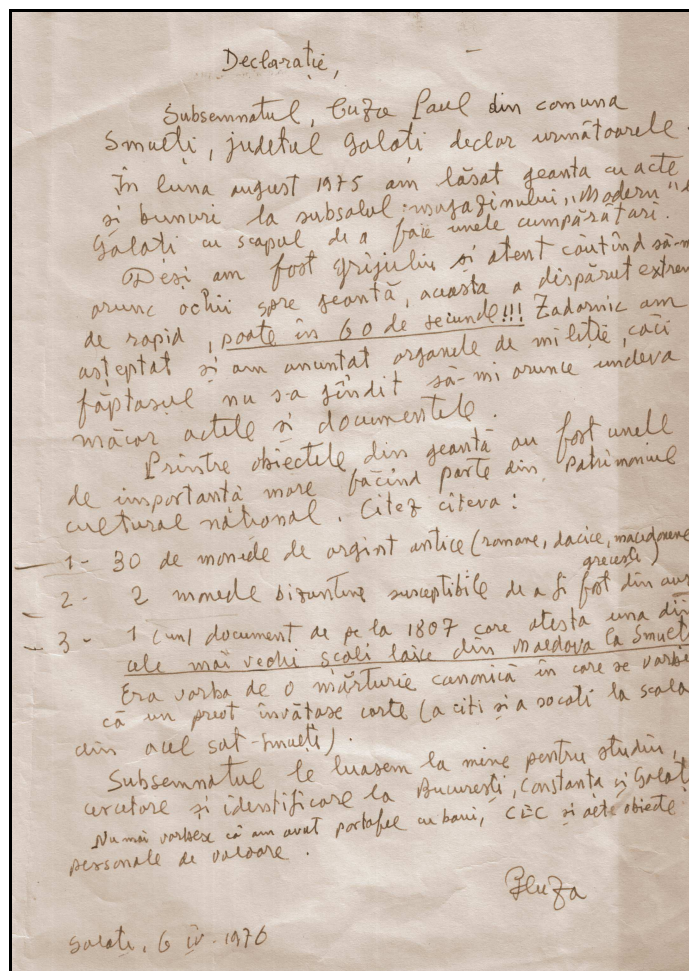 Declarație,
Subsemnatul, Cuza Paul din comuna
Smulți, județul Galați declar următoarele
În luna august 1975 am lăsat geanta cu acte
și bunuri la subsolul magazinului „Modern"
Galați cu scopul de a face unele cumpărături.
Deși am fost grijuliu și atent căutînd să-mi
arunc ochii spre geantă, aceasta a dispărut extrem
de rapid, poate în 60 de secunde!!! Zadarnic am
așteptat și am anunțat organele de miliție, căci
făptașul nu s-a gîndit să-mi arunce undeva
măcar actele și documentele.
Printre obiectele din geantă au fost unele
de importanță mare făcînd parte din patrimoniul
cultural național. Citez cîteva:
1- 30 de monede de argint antice (romane, dacice, macedonene
grecești)
2- 2 monede bizantine susceptibile de a fi fost din aur
3- 1 (un) document de pe la 1807 care atesta una din
cele mai vechi școli laice din Moldova la Smulți
Era vorba de o mărturie canonică în care se vorbea
că un preot învățase carte (a citi și a socoti la școala
din acel sat-Smulți).
Subsemnatul le luasem la mine pentru studiu,
cercetare și identificare la București, Constanța și Galați
Nu mai vorbesc că am avut portofel cu bani, CEC și alte obiecte
personale de valoare.
PCuza
Galați, 6 IV. 1976